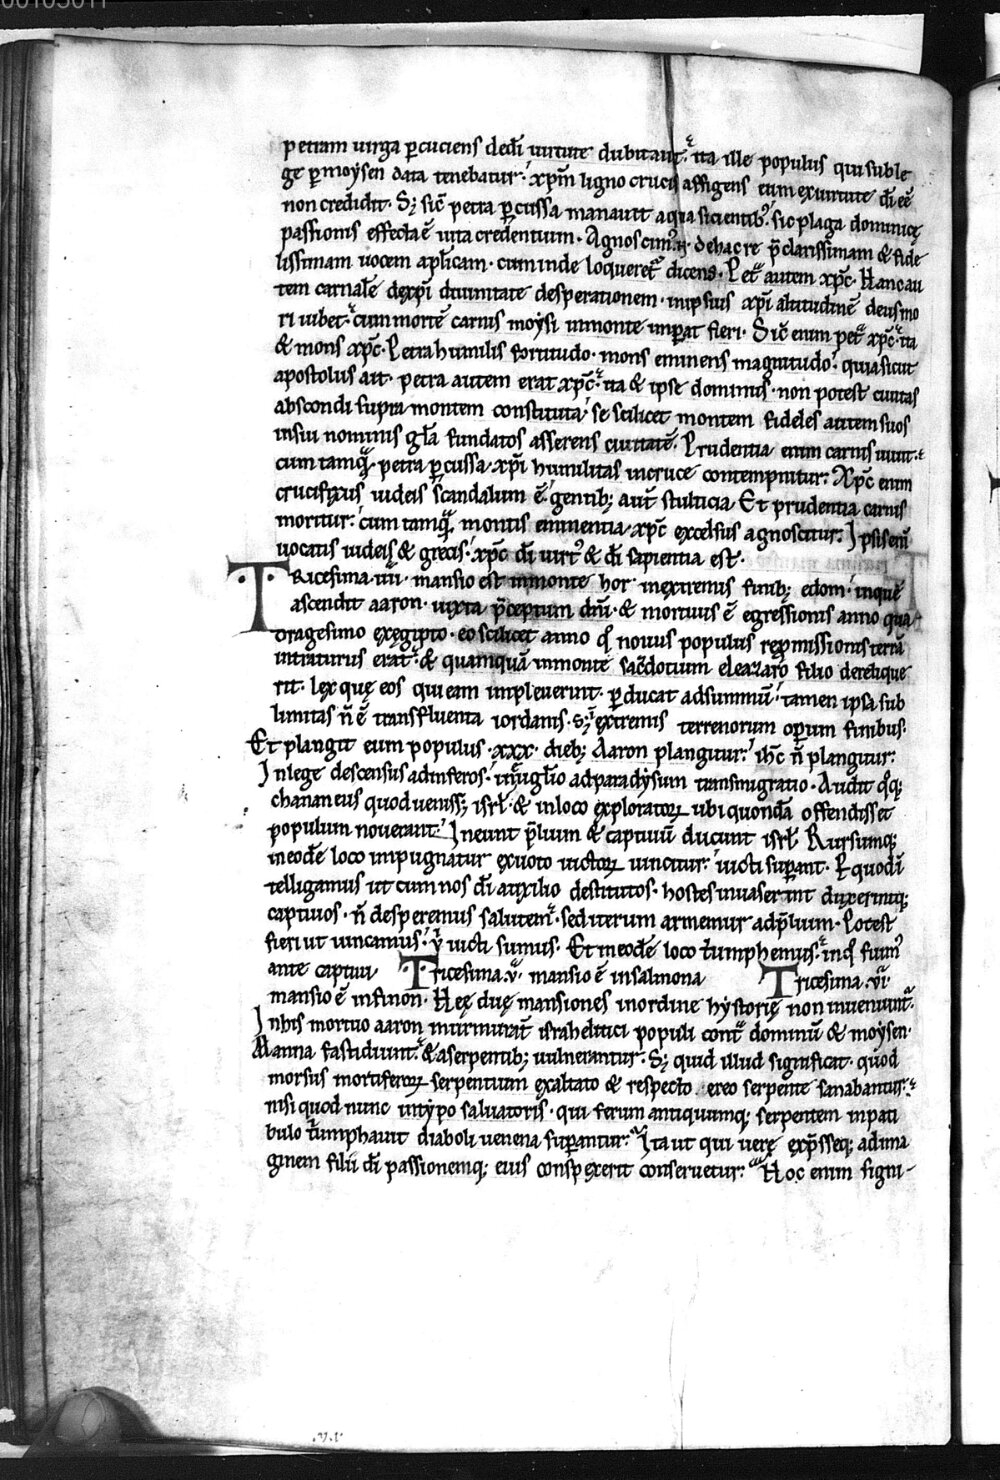 00105011
petram uirga ꝑcuciens dedi̅ uirtute dubitauit: ita ille populus qui sub le
ge ꝑ moysen data tenebatur: xp̅m ligno crucis affigens eum ex uirtute di̅ ee̅
non credidit. Sȝ sic̅ petra ꝑcussa manauit aqua sicientibꝰ: sic plaga dominicę
passionis effecta e̅ uita credentium. Agnoscimꝰ de hac re p̅clarissimam & fide
lissimam uocem apl̅icam. cum inde loqueret᷑ dicens. Pet᷑ autem xp̅c. Hanc au
tem carnale̅ de xp̅i diuinitate desperationem. in ipsius xp̅i altitudine̅ deus mo
ri iubet: cum morte̅ carnis moysi in monte imperat fieri. Sic̅ enim pet᷑ xp̅c: ita
& mons xp̅c. Petra humilis fortitudo. mons eminens magnitudo: quia sicut
apostolus ait. petra autem erat xp̅c: ita & ipse dominus. non potest ciuitas
abscondi supra montem constituta: se scilicet montem fideles autem suos
in sui nominis gl̅a fundatos asserens ciuitate̅. Prudentia enim carnis uiuit.
cum tamq̅. petra ꝑcussa. xp̅i humilitas in cruce contempnitur: Xp̅c enim
crucifixus iudeis scandalum e̅. gentibȝ aut̅ stulticia. Et prudentia carnis
moritur: cum tamq̅. montis eminentia. xp̅c excelsus agnoscitur: Ipsis eni̅
uocatis iudeis & grecis: xp̅c di̅ uirtꝰ & di̅ sapientia est.
TRicesima. iiii. mansio est in monte hor. in extremis finibȝ edom. in que̅
ascendit aaron. iuxta p̅ceptum dn̅i. & mortuus e̅ egressionis anno qua
dragesimo ex ęgipto. eo scilicet anno q̅ nouus populus repromissionis terra̅
intraturus erat: & quamqua̅ in monte sac̅dotium eleazaro filio derelique
rit. lex quę eos qui eam impleuerint. ꝑducat ad summu̅: tamen ipsa sub
limitas n̅ e̅ trans fluenta iordanis. sȝ extremis terrenorum operum finibus.
Et plangit eum populus. xxx. diebȝ Aaron plangitur: ih̅c n̅ plangitur:
In lege descensus ad inferos: in euuglio̅ ad paradysum transmigratio. Audit qȝ
chananeus quod uenissȝ isrl̅. & in loco exploratoꝝ ubi quonda̅ offendisset
populum nouerant: Ineunt p̅lium & captiuu̅ ducunt isrl̅. Rursumqȝ
in eode̅ loco impugnatur ex uoto uictoꝝ uincitur: uicti superant. P quod i̅
telligamus ut cum nos di̅ auxilio destitutos. hostes inuaserint duxerintqȝ
captiuos. n̅ desperemus salutem: sed iterum armemur ad p̅lium. Potest
fieri ut uincamus: u̅ uicti sumus. Et in eode̅ loco t̅umphemus: in q̅ fuimꝰ
ante captiui. Tricesima. v̅. mansio e̅ in salmona Tricesima. vi̅
mansio e̅ in finon. Hęę duę mansiones in ordine hystorię non inueniunt᷑.
In his mortuo aaron murmurat̅ israhelitici populi cont᷑ dominu̅ & moysen.
Manna fastidiunt: & a serpentibȝ uulnerantur. Sȝ quid illud significat. quod
morsus mortiferoꝝ serpentium exaltato & respecto ereo serpente sanabantur:
nisi quod nunc in typo saluatoris. qui ferum antiquumqȝ serpentem in pati
bulo t̅umphauit diaboli uenena superantur: Ita ut qui uerę exp̅sseqȝ ad ima
ginem filii di̅ passionemqȝ eius conspexerit conseruetur: Hoc enim signi-